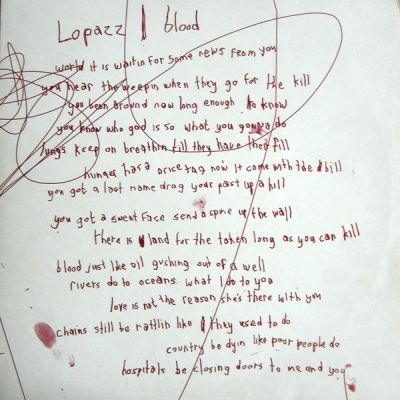 Lopazz | blood
world it is waitin for some news from you
you hear the weepin when they go for the kill
you been around now long enough to know
you know who god is so what you gonna do
lungs keep on breathin till they have their fill
hunger has a price tag now it come with the bill
you got a last name drag your past up a hill
you got a sweet face send a spine up the wall
there is land for the taken long as you can kill
blood just like oil gushing out of a well
rivers do to oceans what I do to you
love is not the reason she's there with you
chains still be rattlin like they used to do
country be dyin like poor people do
hospitals be closing doors to me and you